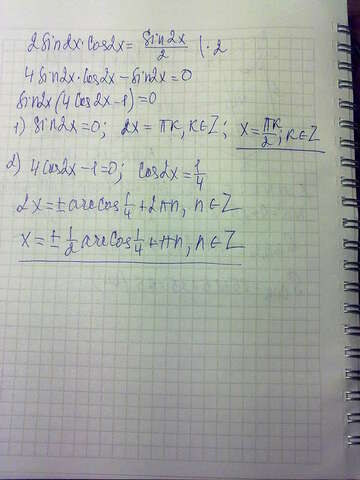 2 sin2x·cos2x = sin2x/2 |·2
4 sin2x·cos2x - sin2x = 0
sin2x(4cos2x-1)=0
1) sin2x=0; 2x = πk, k∈Z; x = πk/2; k∈Z
2) 4cos2x-1=0; cos2x = 1/4
2x = ± arccos 1/4 + 2πn, n∈Z
x = ± 1/2 arccos 1/4 + πn, n∈Z